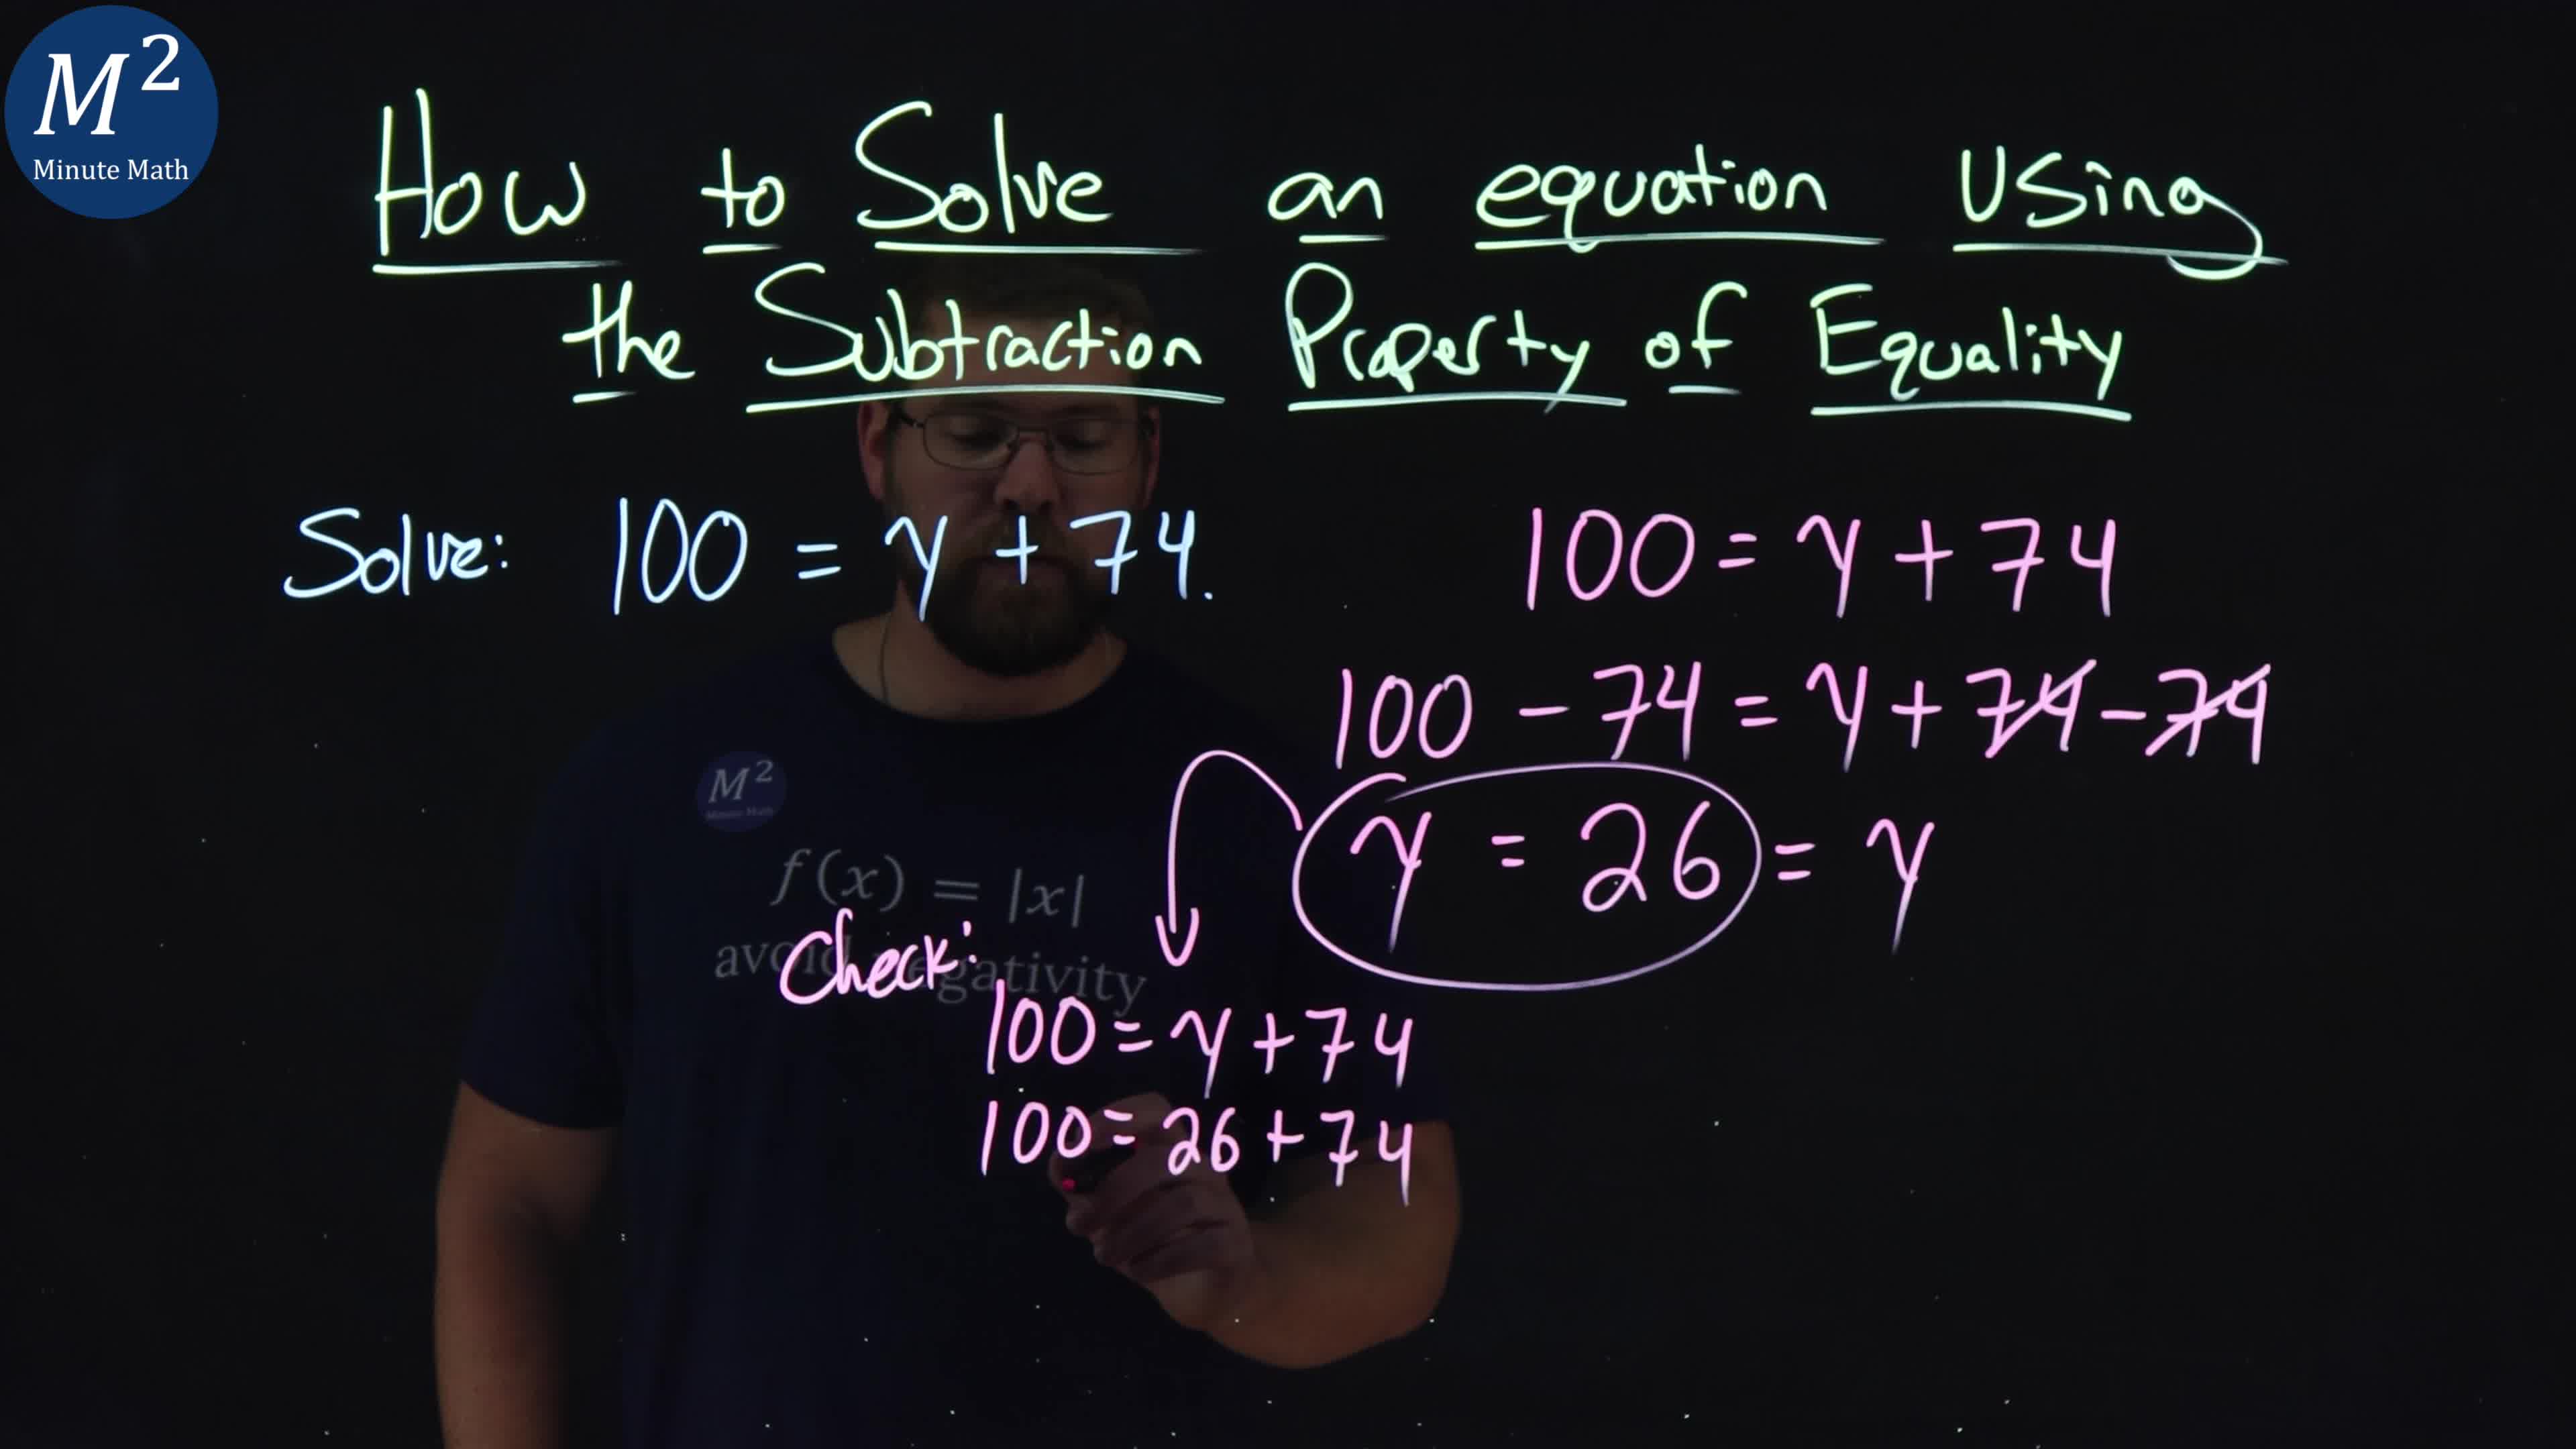 M²
Minute Math
How to Solve an equation Using
the Subtraction Property of Equality
Solve: 100 = y + 74.
100 = y + 74
100 - 74 = y + 74 - 74
y = 26 = y
M²
Minute Math
f(x) = |x|
avoid negativity
Check:
100 = y + 74
100 = 26 + 74